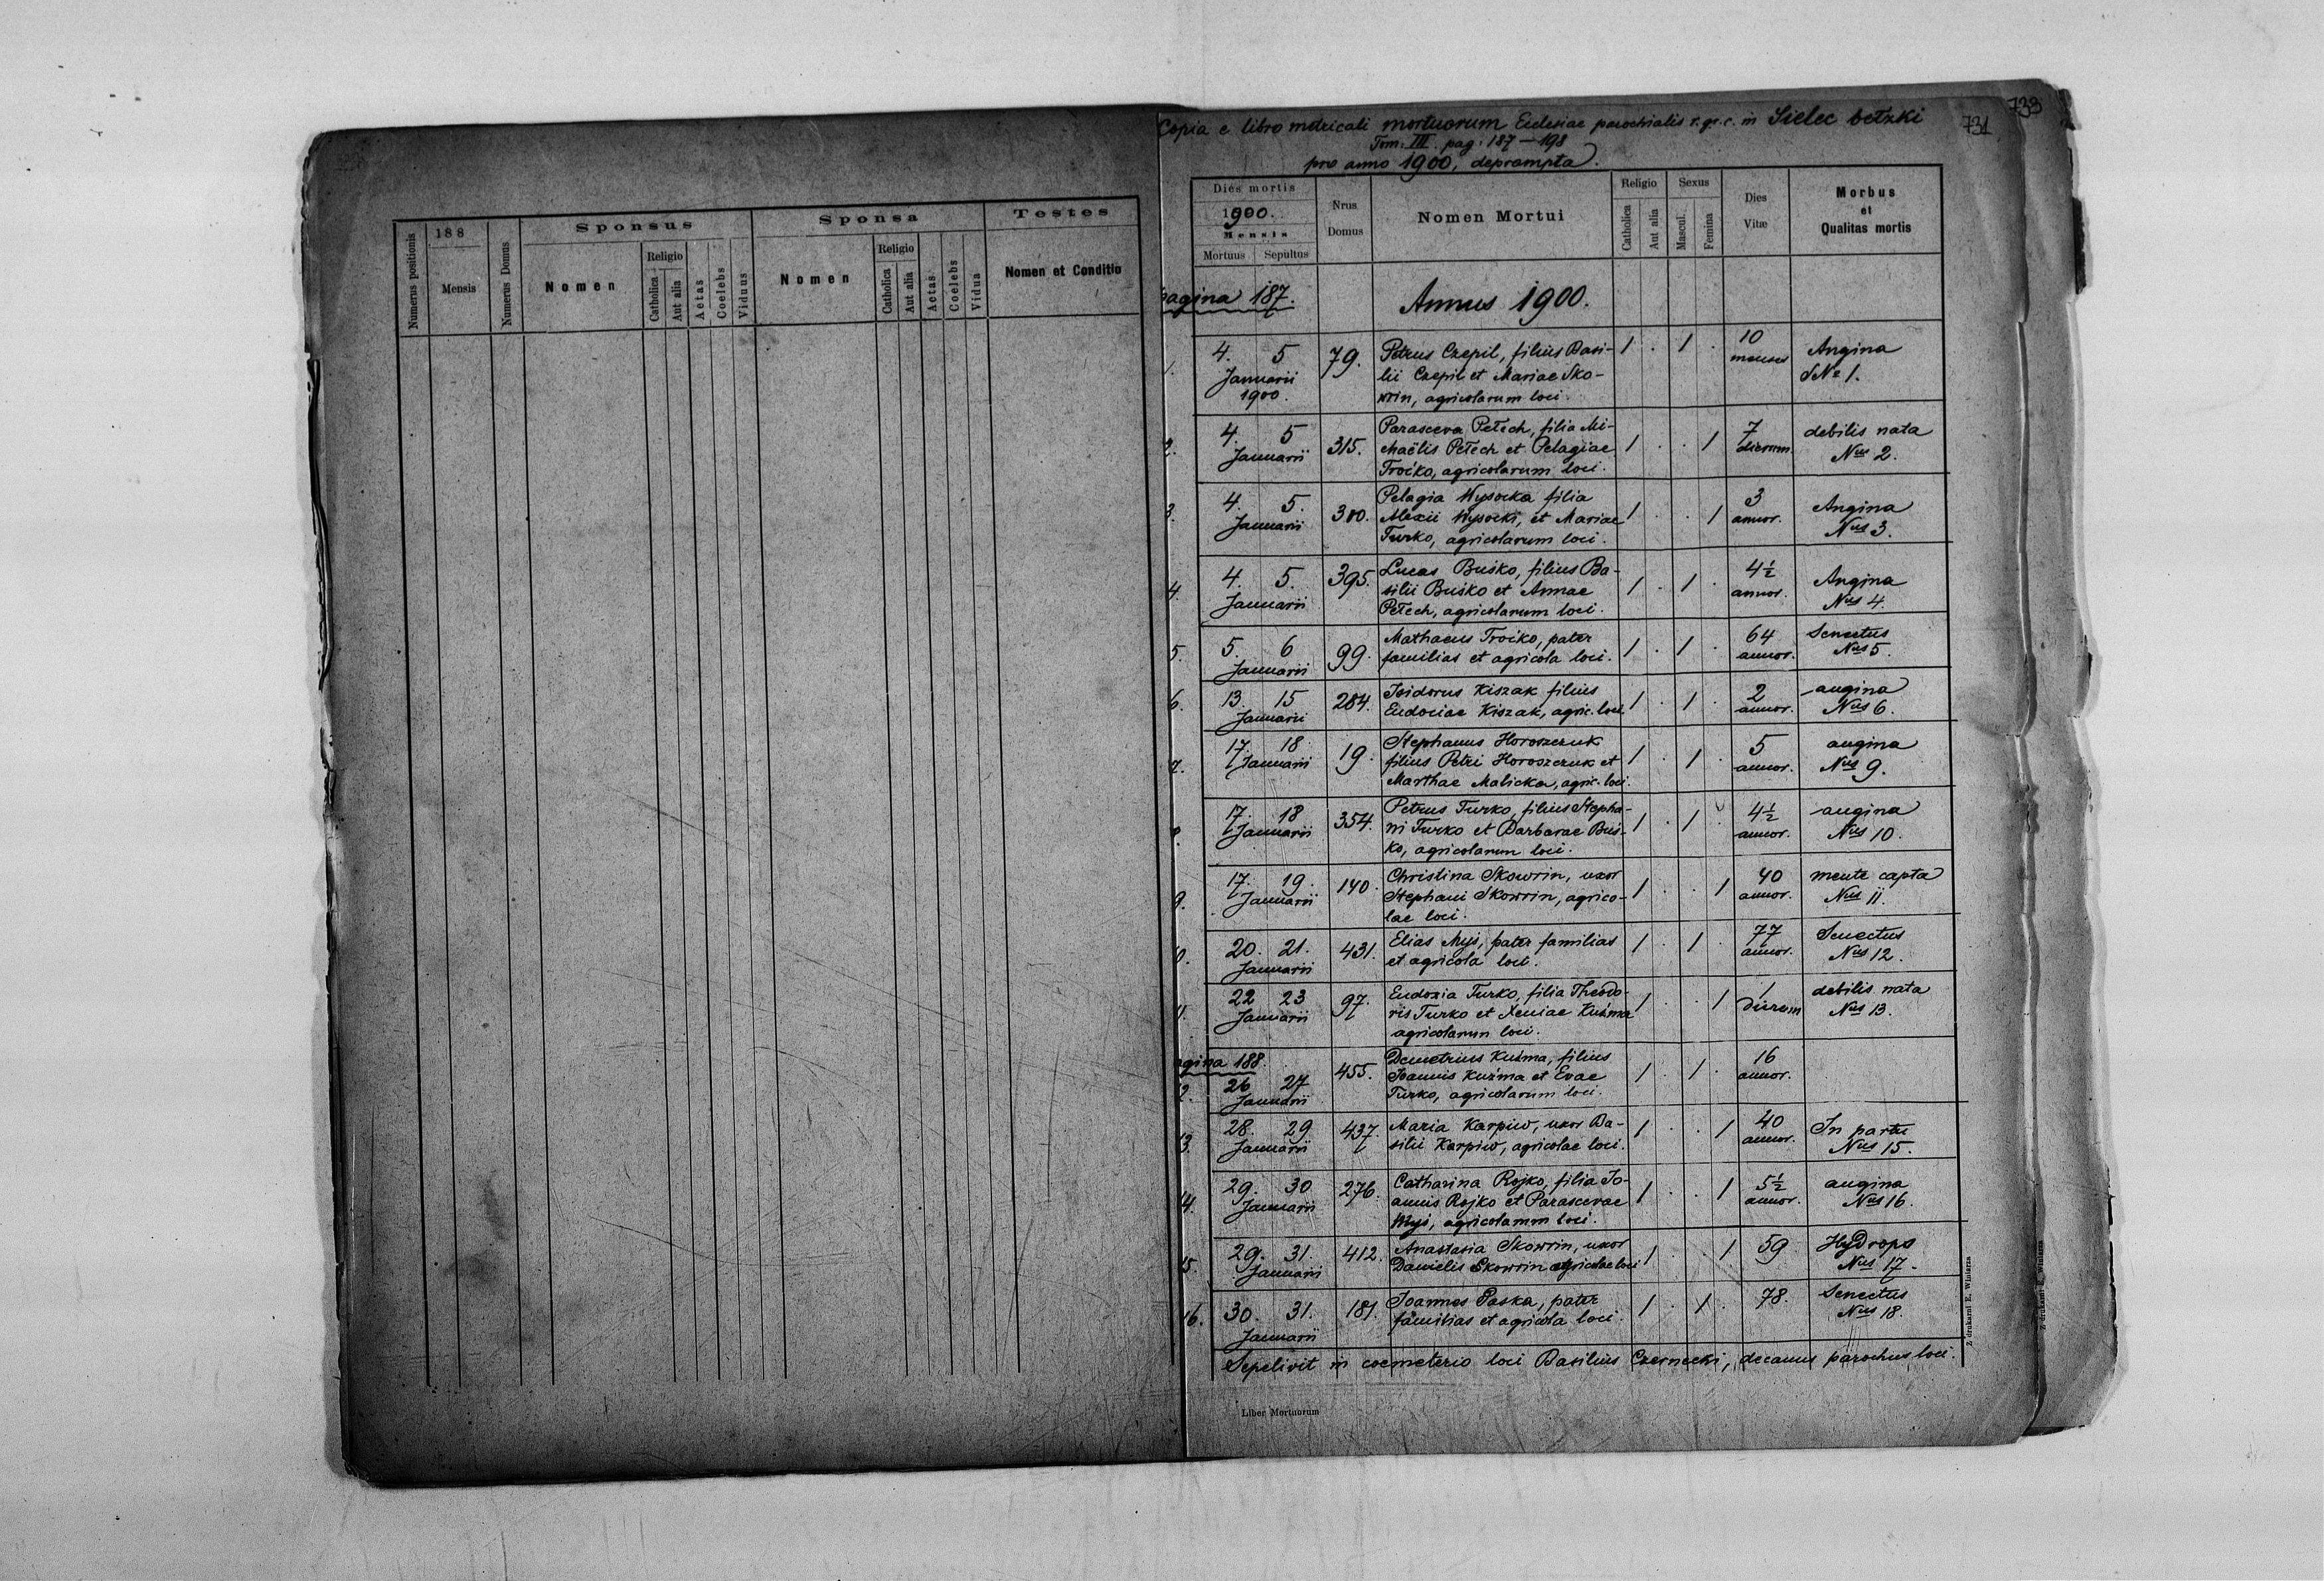 733
731
Copia e libro metricali mortuorum Eclesiae parochialis r. gr. c. in Sielec bełzki
Tom: III. pag: 187 — 198
pro anno 1900, deprompta.
Numerus positionis
188
Mensis
Numerus Domus
Sponsus
Nomen
Religio
Catholica
Aut alia
Aetas
Coelebs
Viduus
Sponsa
Nomen
Religio
Catholica
Aut alia
Aetas
Coelebs
Vidua
Testes
Nomen et Conditio
Dies mortis
1900.
Mensis
Mortuus Sepultus
Nrus
Domus
Nomen Mortui
Religio
Catholica
Aut alia
Sexus
Mascul.
Femina
Dies
Vitæ
Morbus
et
Qualitas mortis
pagina 187.
Annus 1900.
1. 4. 5 79. Petrus Czepil, filius Basi- 1 . 1 . 10 Angina
Januarii lii Czepil et Mariae Sko- menses № 1.
1900. wrin, agricolarum loci.
2. 4. 5 315. Parasceva Pełech, filia Mi- 1 . . 1 7 debilis nata
Januarii chaëlis Pełech et Pelagiae dierum Nus 2.
Troiko, agricolarum loci.
3. 4. 5. 380. Pelagia Wysocka filia 1 . . 1 3 Angina
Januarii Alexii Wysocki, et Mariae annor. Nus 3.
Turko, agricolarum loci.
4. 4. 5. 395. Lucas Buśko, filius Ba- 1 . 1 . 4½ Angina
Januarii silii Buśko et Annae annor. Nus 4.
Pełech, agricolarum loci.
5. 5. 6 99. Mathaeus Troiko, pater 1 . 1 . 64 Senectus
Januarii familias et agricola loci. annor. Nus 5.
6. 13. 15 284. Isidorus Kiszak filius 1 . 1 . 2 angina
Januarii Eudociae Kiszak, agric. loci. annor. Nus 6.
7. 17. 18 19. Stephanus Horoszczuk 1 . 1 . 5 angina
Januarii filius Petri Horoszczuk et annor. Nus 9.
Marthae Malicka, agric. loci.
8. 17. 18 354. Petrus Turko, filius Stepha- 1 . 1 . 4½ angina
Januarii ni Turko et Barbarae Buś- annor. Nus 10.
ko, agricolarum loci.
9. 17. 19. 140. Christina Skowrin, uxor 1 . . 1 40 mente capta
Januarii Stephani Skowrin, agrico- annor. Nus 11.
lae loci.
0. 20. 21. 431. Elias Myś, pater familias 1 . 1 . 77 Senectus
Januarii et agricola loci. annor. Nus 12.
11. 22 23 97. Eudoxia Turko, filia Theodo- 1 . . 1 1 debilis nata
Januarii ris Turko et Xeniae Kuźma dierum Nus 13.
agricolarum loci.
agina 188.
2. 26 27 455. Demetrius Kuźma, filius 1 . 1 . 16
Januarii Joannis Kuźma et Evae annor.
Turko, agricolarum loci.
13. 28. 29 437. Maria Karpiw, uxor Ba- 1 . . 1 40 In partu
Januarii silii Karpiw, agricolae loci. annor. Nus 15.
14. 29. 30 276. Catharina Rojko, filia Jo- 1 . . 1 5½ angina
Januarii annis Rojko et Parascevae annor. Nus 16.
Myś, agricolarum loci.
15. 29. 31. 412. Anastasia Skowrin, uxor 1 . . 1 59 Hydrops
Januarii Danielis Skowrin agricolae loci Nus 17.
16. 30. 31. 181. Joannes Paska, pater 1 . 1 . 78. Senectus
Januarii familias et agricola loci. Nus 18.
Sepelivit in coemeterio loci Basilius Czernecki, decanus parochus loci.
Liber Mortuorum
Z drukarni E. Winiarza
Z drukarni E. Winiarza